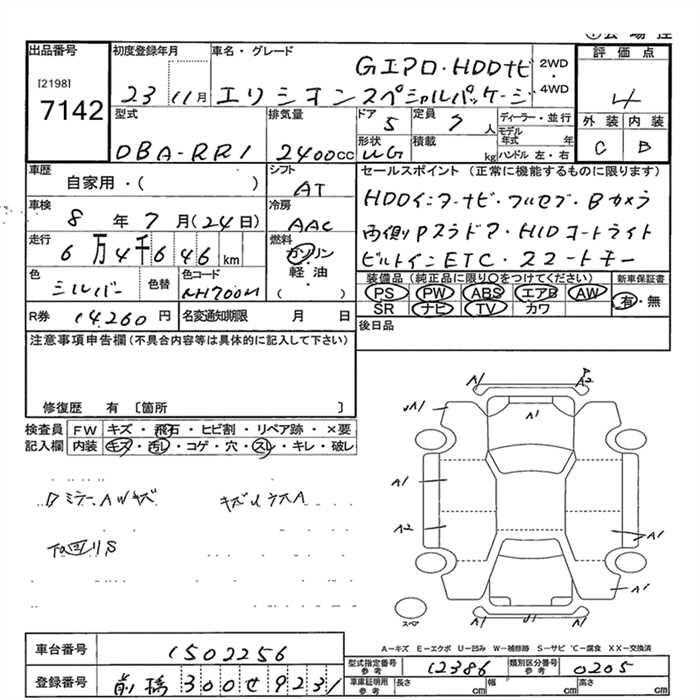 出品番号 初度登録年月 車名・グレード 評価点
[2198] Gエアロ・HDDナビ 2WD
7142 23 11月 エリシオン スペシャルパッケージ ・4WD 4
型式 排気量 ドア 定員 ディーラー・並行 外装 内装
5 7人 モデル年式 年
DBA-RR1 2400cc 形状 WG 積載 kg ハンドル 左・右 C B
車歴 シフト セールスポイント (正常に機能するものに限ります)
自家用・( ) AT HDDインターナビ・フルセグ・Bカメラ
車検 冷房
8年7月(24日) AAC 両側Pスラドア・HIDオートライト
走行 燃料
6万4千646km ガソリン ビルトインETC・スマートキー
色 色替 色コード 軽油 装備品(純正品に限り○をつけてください) 新車保証書
シルバー NH700M ・( ) PS PW ABS エアB AW 有・無
SR ナビ TV カワ
R券 14,260円 名変通知期限 月 日 後日品
注意事項申告欄(不具合内容等は具体的に記入して下さい)
修復歴 有 〔箇所 〕
検査員 FW キズ・飛石・ヒビ割・リペア跡・×要
記入欄 内装 キズ・汚レ・コゲ・穴・スレ・キレ・破レ
A1 A2
UA1 A1
A1
A2 A1
A1
U1
スペア
A-キズ E-エクボ U-凹み W-補修跡 S-サビ C-腐食 XX-交換済
車台番号 1502256
型式指定番号 参考 12386 類別区分番号 参考 0205
登録番号 前橋300せ9231
車庫証明用 参考 長さ cm 幅 cm 高さ cm